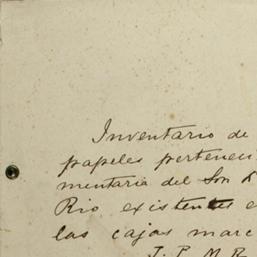 Inventario de
papeles pertenen
mentaria del Son D
Rio existentes e
las cajas marc
J. P. M. R